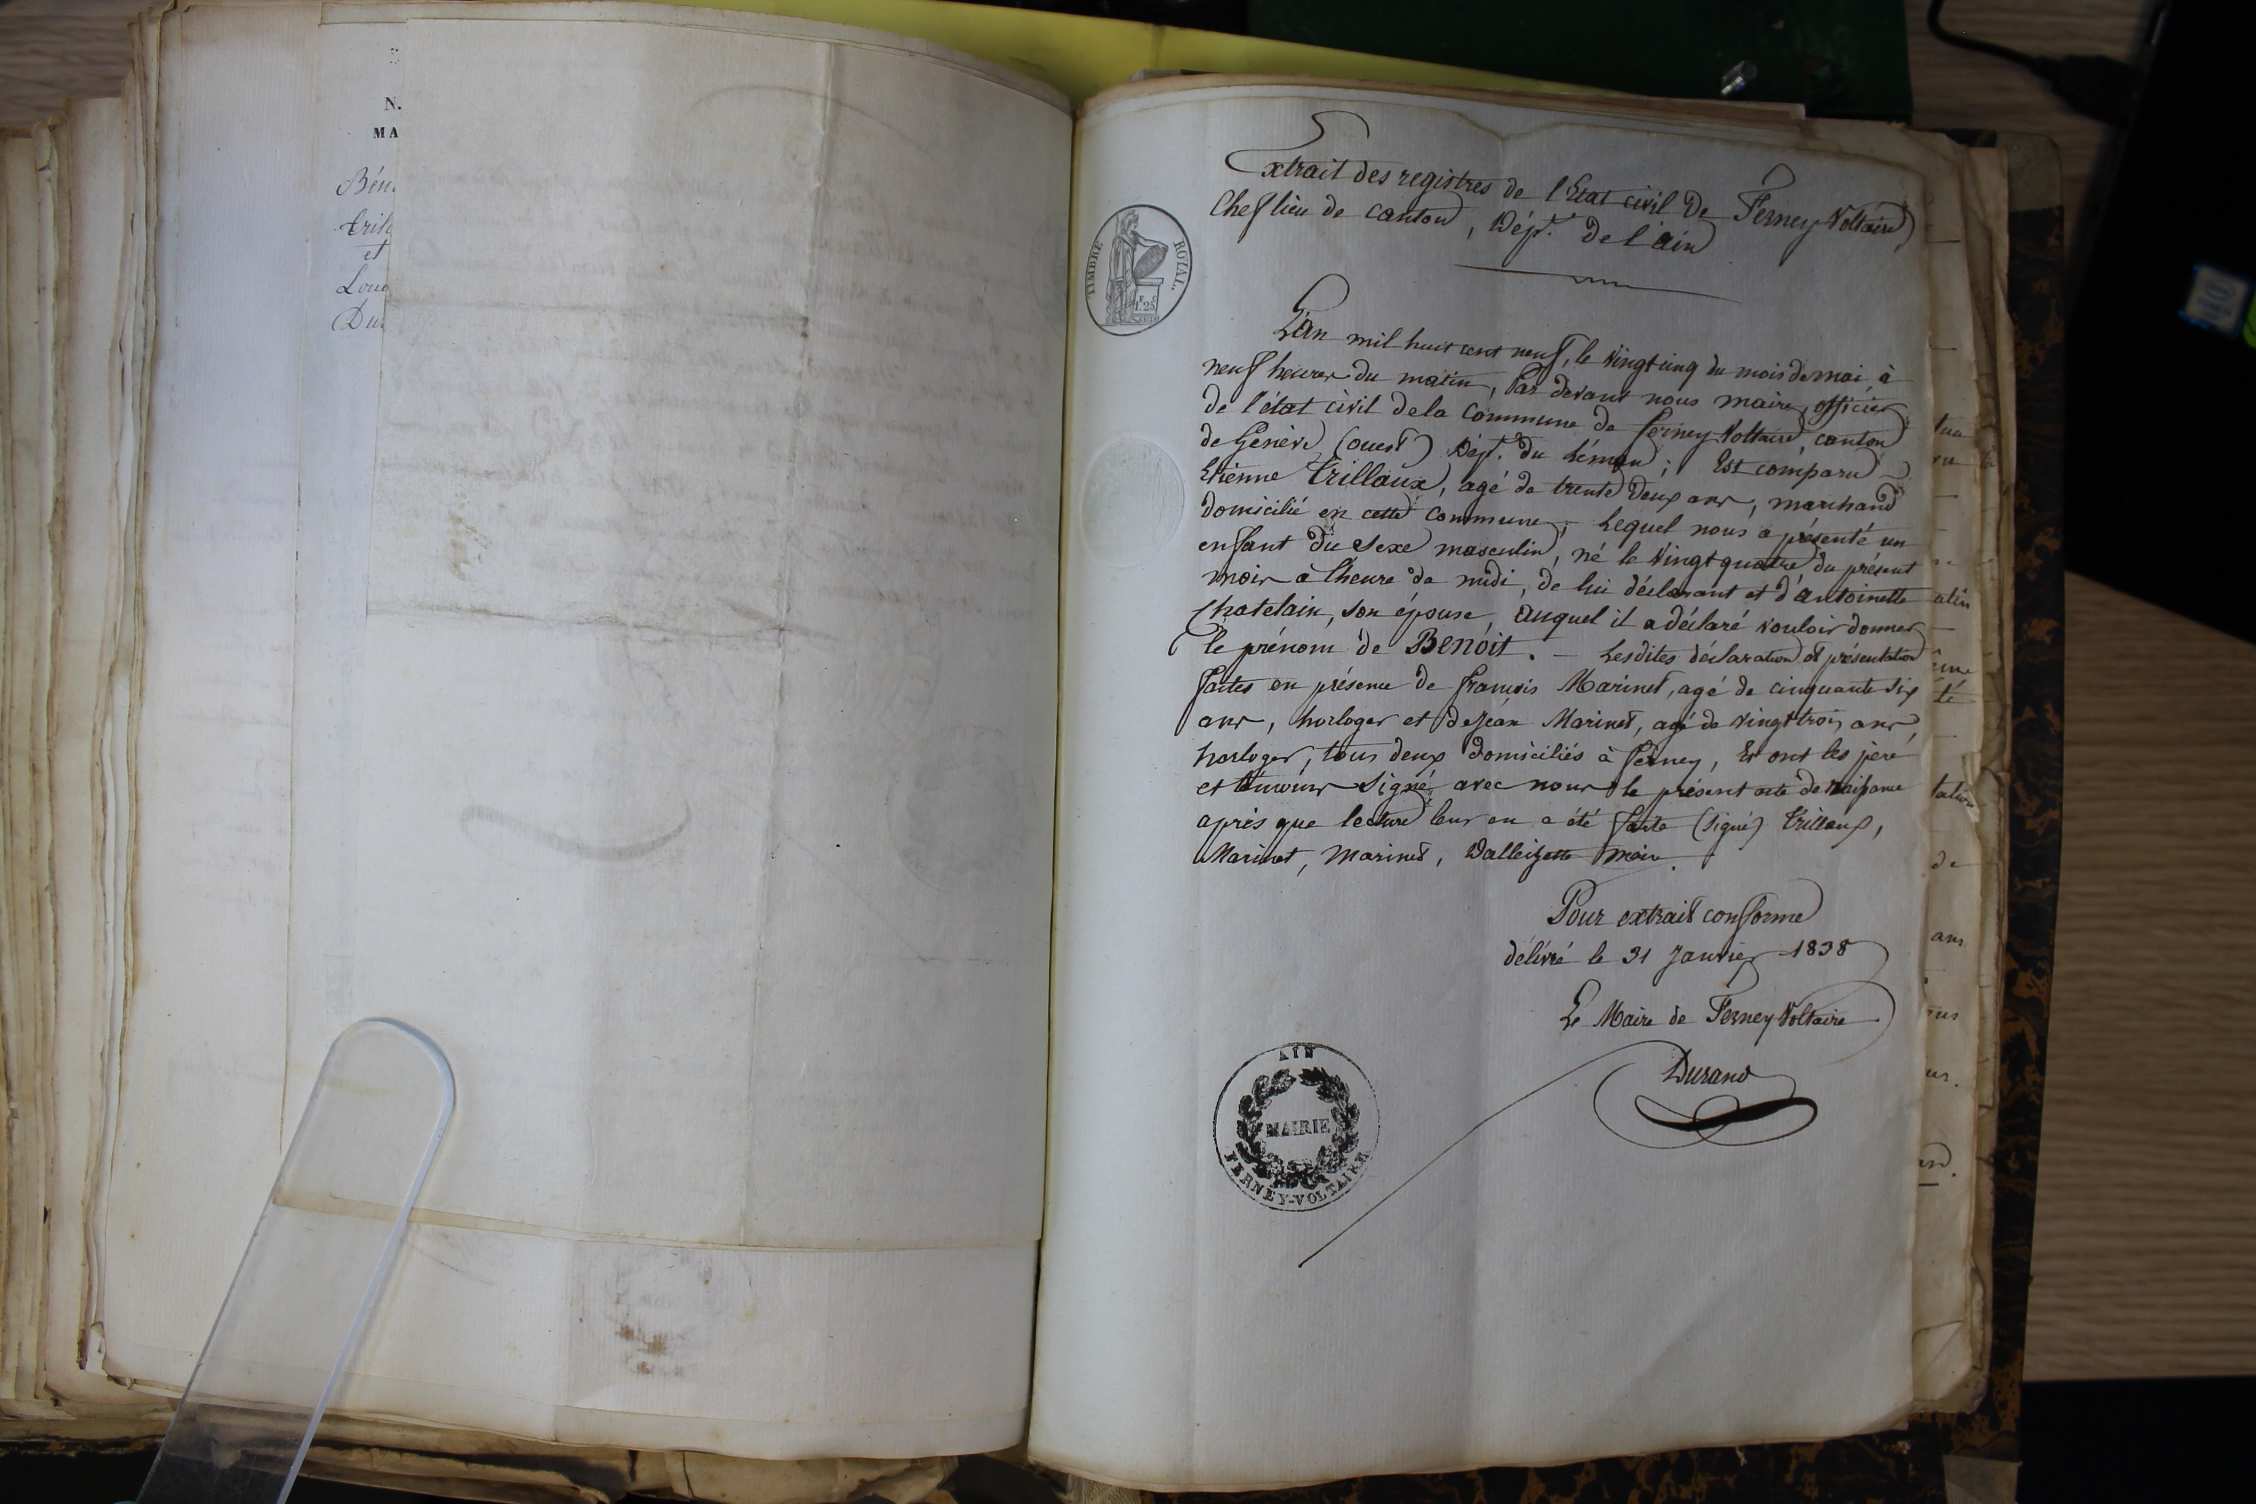 N.
MA
Bén
tril
et
Loui
Du
Extrait des registres de l'Etat civil De Ferney Voltaire
Cheflieu de canton, Dépt. De l'ain
TIMBRE ROYAL
1F.25C
L'an mil huit cent neuf, le vingt cinq du mois de mai, à
neuf heures du matin, Par devant nous maire, officier
de l'état civil dela Commune de ferney Voltaire canton
de Genève (ouest) Dépt. du Léman; Est comparu
Etienne Trilloux, agé de trente deux ans, marchand
domicilié en cette commune; Lequel nous a présenté un
enfant du sexe masculin, né le vingt quatre du présent
mois à l'heure de midi, de lui déclarant et d'antoinette
Chatelain, son épouse, auquel il a déclaré vouloir donner
le prénom de BENOIT. — Lesdites déclaration et présentation
faites en présence de françois Marinet, agé de cinquante six
ans, horloger et de Jéan Marinet, agé de vingt trois ans,
horloger, tous deux domiciliés à ferney, Et ont les père
et témoins signé avec nous le présent acte de naissance
après que lecture leur en a été faite (signé) Trilloux,
Marinet, Marinet, maire.
Pour extrait conforme
délivré le 31 Janvier 1838
Le Maire de Ferney Voltaire
Durand
AIN
MAIRIE
FERNEY-VOLTAIRE
tation
de
ans